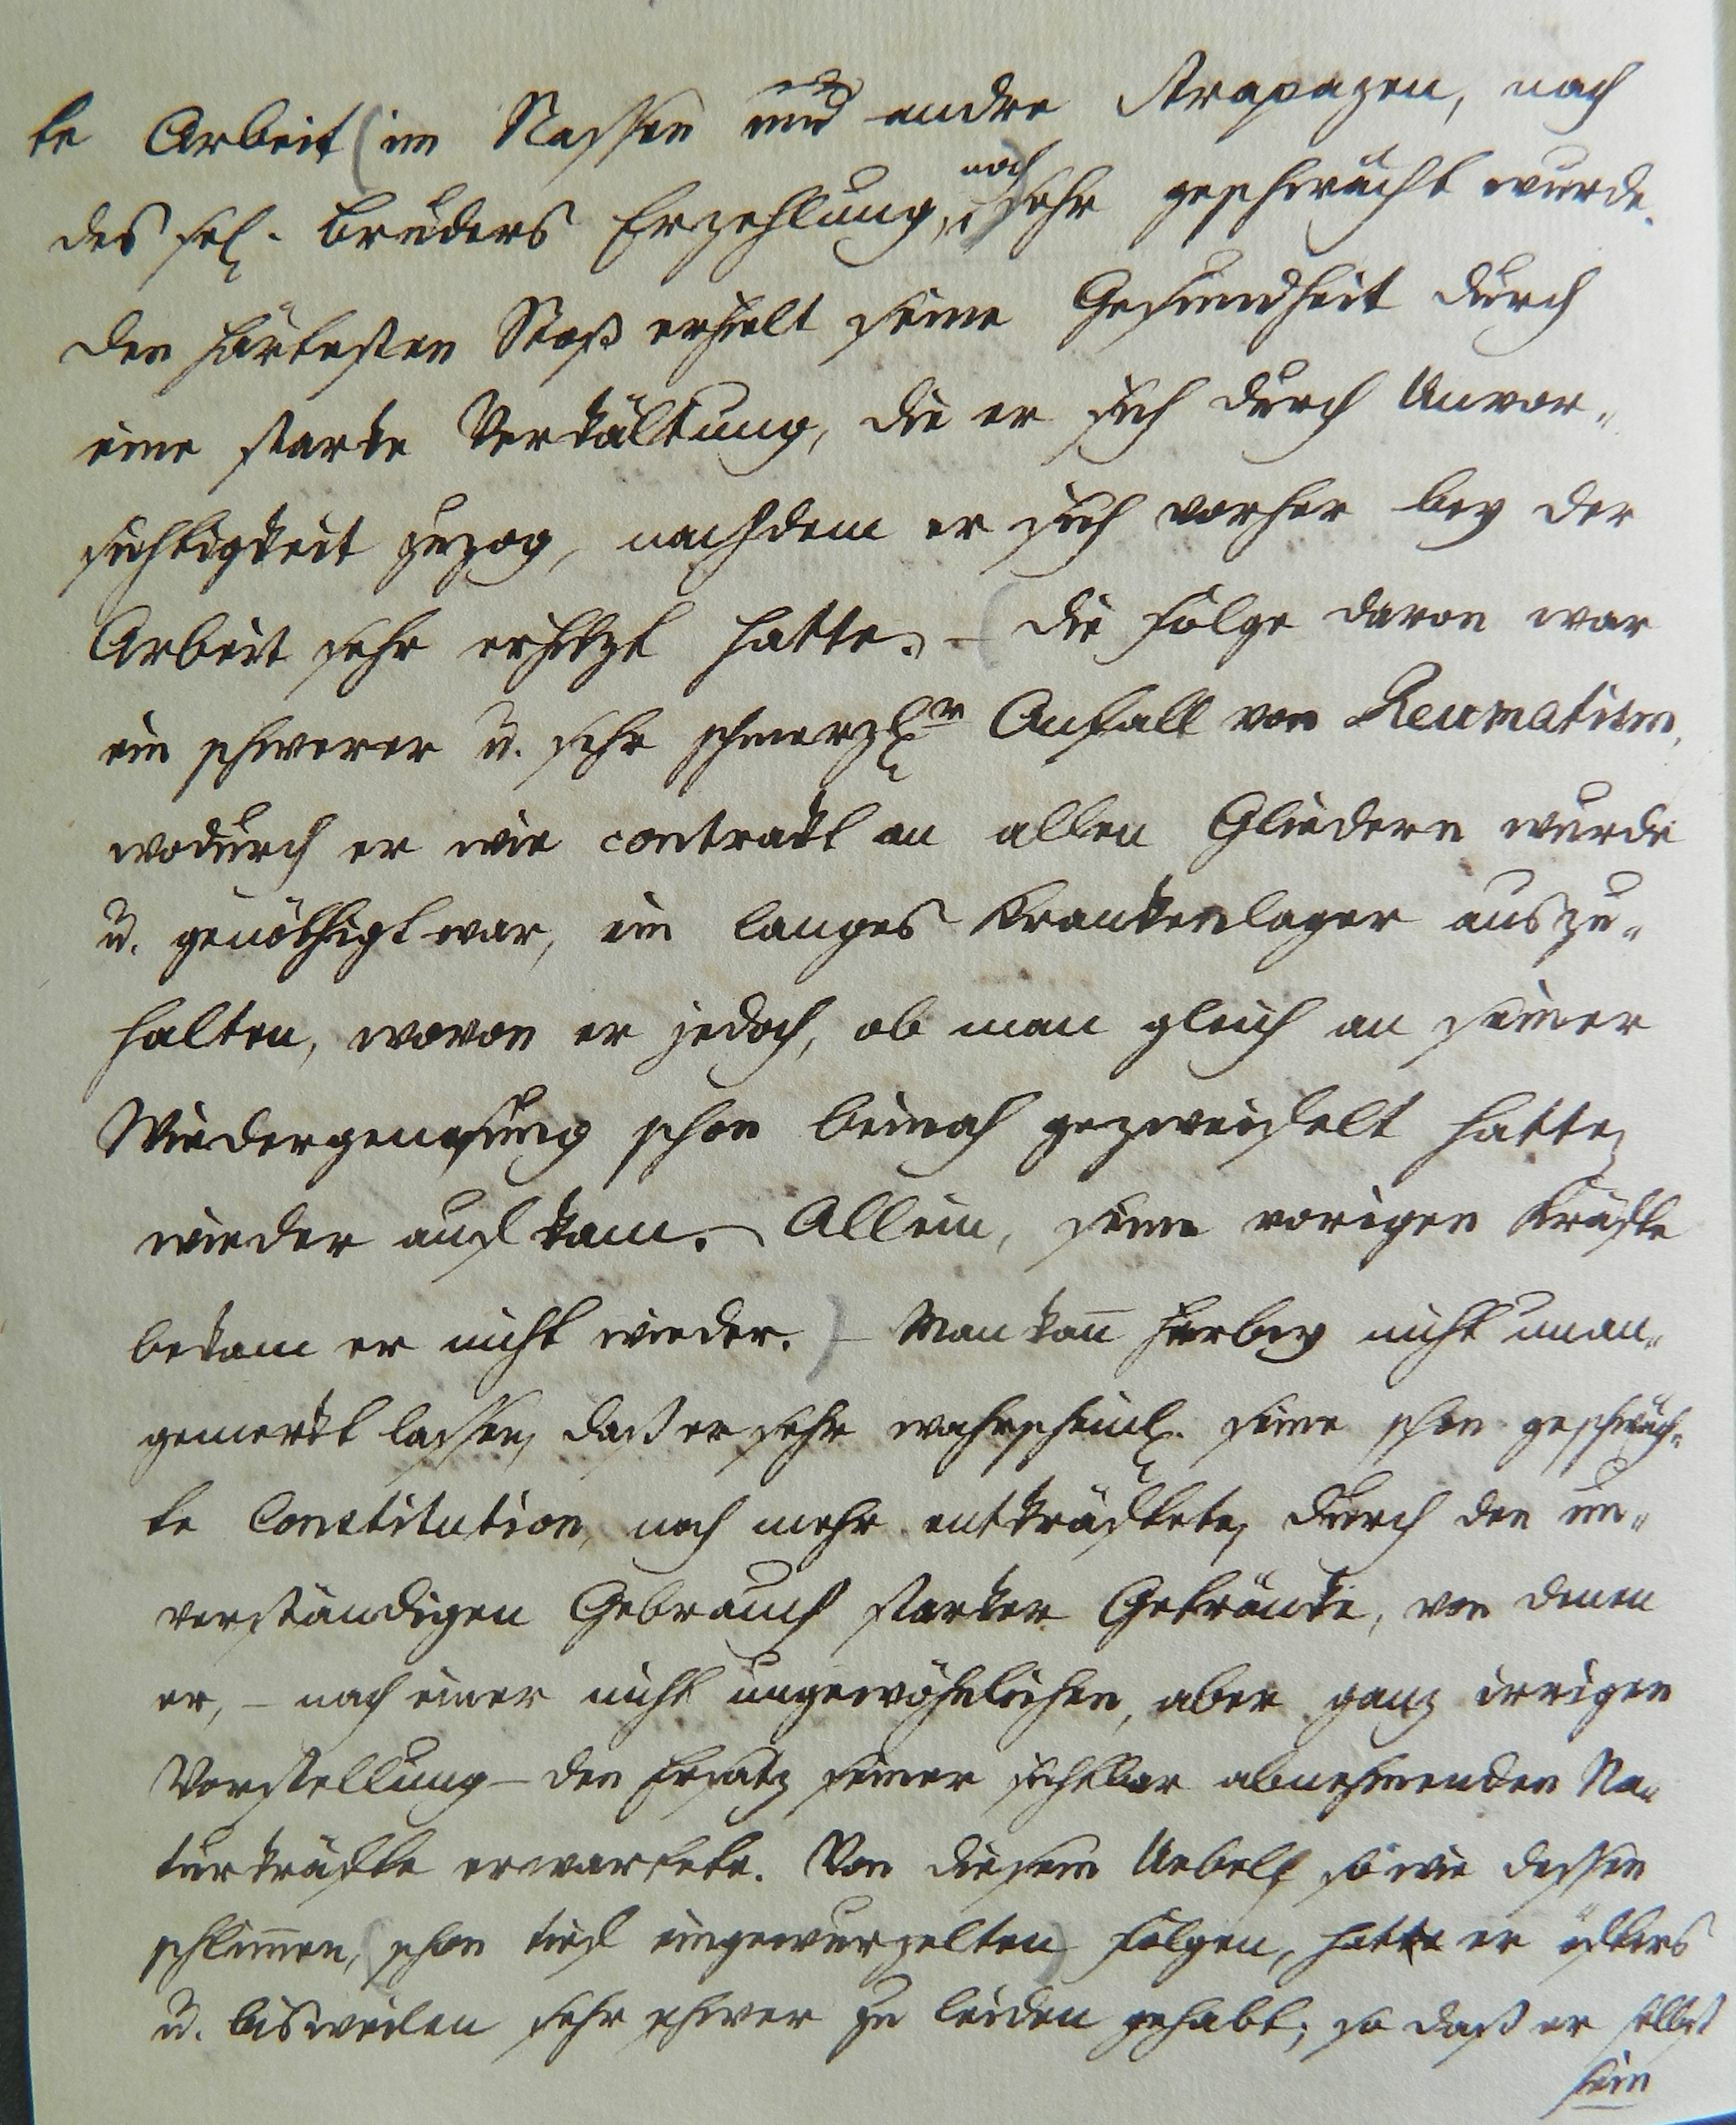 te Arbeit (im Nassen und andre Strapazen, nach
des sel. Bruders Erzehlung, noch) sehr geschwächt wurde.
Den härtesten Stoß erhielt seine Gesundheit durch
eine starke Verkältung, die er sich durch Unvor„
sichtigkeit zuzog, nachdem er sich vorher bey der
Arbeit sehr erhitzt hatte. – (Die Folge davon war
ein schwerer u. sehr schmerzl.r Anfall von Reumatism,
wodurch er wie contrakt an allen Gliedern wurde
u. genöthigt war, ein langes Krankenlager auszu„
halten, wovon er jedoch, ob man gleich an seiner
Wiedergenesung schon beinah gezweifelt hatte,
wieder aufkam. Allein, seine vorigen Kräfte
bekam er nicht wieder.) – Man kañ hierbey nicht unan„
gemerkt lassen, daß er sehr wahrscheinl. seine schon geschwäch„
te Constitution, noch mehr entkräftete, durch den un„
verständigen Gebrauch starker Getränke, von denen
er, – nach einer nicht ungewöhnlichen, aber ganz irrigen
Vorstellung – den Ersatz seiner sichtbar abnehmenden Na„
turkräfte erwartete. Von diesem Uebel, so wie dessen
schlim̄en, (schon tief eingewurzelten) Folgen, hatte er öfters
u. bisweilen sehr schwer zu leiden gehabt; so daß er selbst
sein